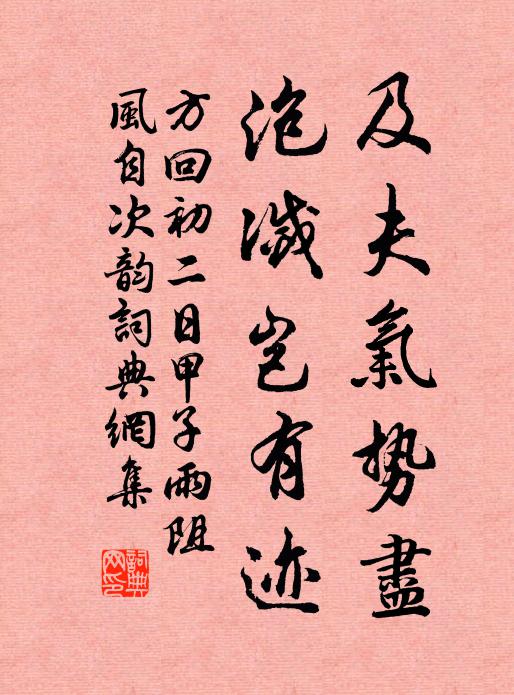 及夫氣势盡
泡滅岂有迹
方回初二日甲子雨阻
風自次韵詞典網集
詞典網印